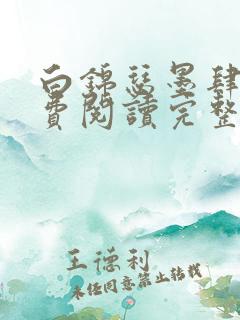 白锦瑟墨肆
費閱讀完整
王德利
未经同意禁止转载